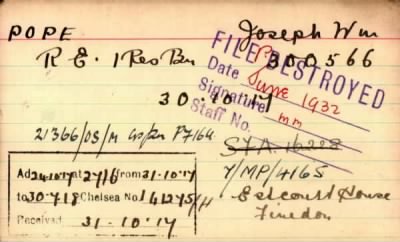 POPE Joseph Wm
R.E. 1 Res Bn 300566
FILE DESTROYED
Date June 1932
Signature
Staff No. mm
30.10.17
21366/OS/M
S.T.A. 16228
Y/MP/4165
Ad 24.10.17 at 27/6 from 31.10.17
to 30.7.18 Chelsea No 141275/H
Received 31-10-17
Estcourt House
Finedon